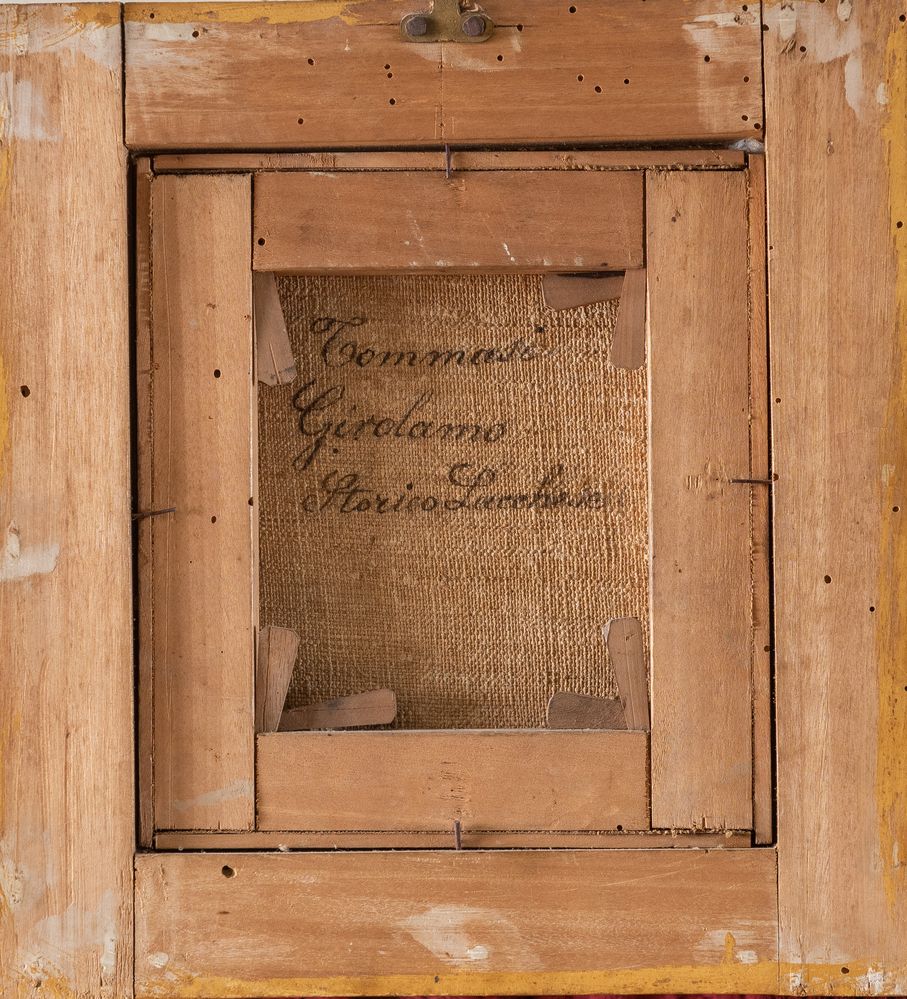 Tommasi
Girolamo
Storico Lucchese